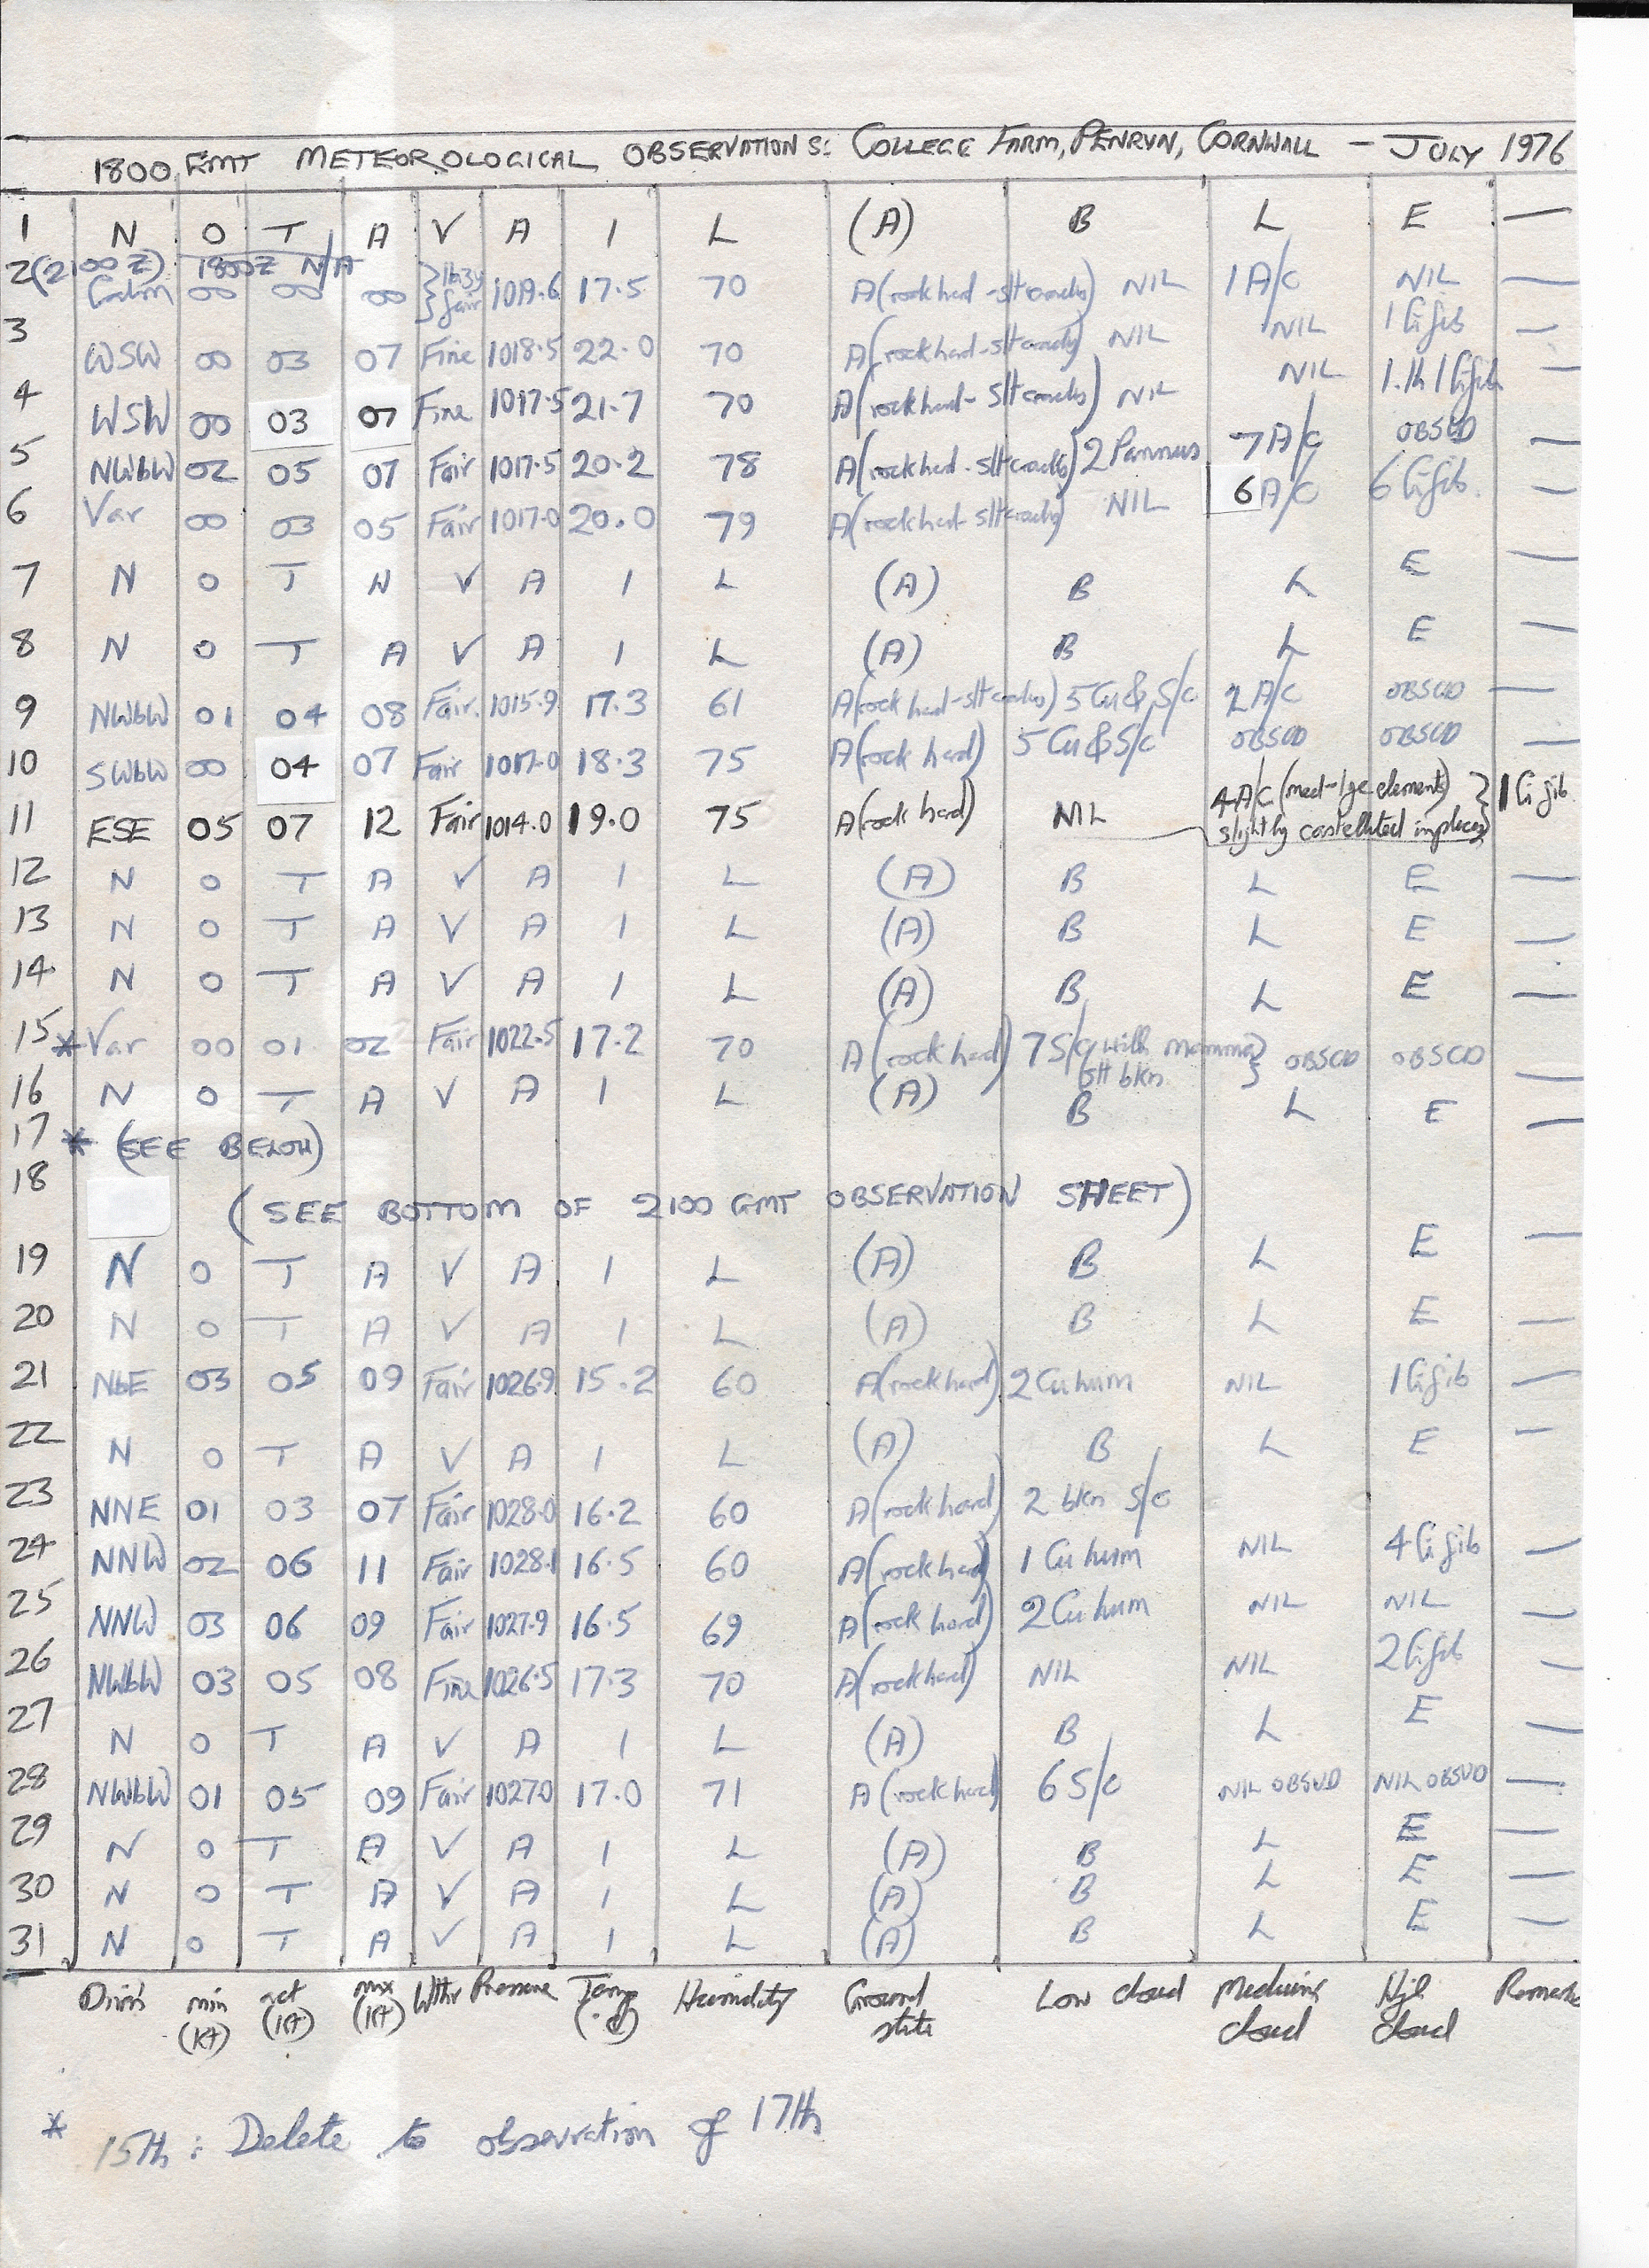 1800 GMT METEOROLOGICAL OBSERVATIONS: COLLEGE FARM, PENRYN, CORNWALL - JULY 1976
1 N O T A V A I L (A) B L E —
2 (2100Z) 1800Z N/A
Calm 00 00 00 fair 1019.6 17.5 70 A (rock hard - slt cracks) NIL 1 A/C NIL —
3 WSW 00 03 07 Fine 1018.5 22.0 70 A (rock hard - slt cracks) NIL NIL 1 Ci fib —
4 WSW 00 03 07 Fine 1017.5 21.7 70 A (rock hard - slt cracks) NIL NIL 1 Ci fib —
5 NWbW 02 05 07 Fair 1017.5 20.2 78 A (rock hard - slt cracks) 2 Pannus 7 A/C OBSCD —
6 Var 00 03 05 Fair 1017.0 20.0 79 A (rock hard - slt cracks) NIL 6 A/C 6 Ci fib. —
7 N O T A V A I L (A) B L E —
8 N O T A V A I L (A) B L E —
9 NWbW 01 04 08 Fair. 1015.9 17.3 61 A (rock hard - slt cracks) 5 Cu & S/c 2 A/C OBSCD —
10 SWbW 00 04 07 Fair 1017.0 18.3 75 A (rock hard) 5 Cu & S/c OBSCD OBSCD —
11 ESE 05 07 12 Fair 1014.0 19.0 75 A (rock hard) NIL 4 A/C (med-lge elements) slightly castellated in places } 1 Ci fib.
12 N O T A V A I L (A) B L E —
13 N O T A V A I L (A) B L E —
14 N O T A V A I L (A) B L E —
15 * Var 00 01 02 Fair 1022.5 17.2 70 A (rock hard) 7 S/c with mamma slt bkn. } OBSCD OBSCD —
16 N O T A V A I L (A) B L E —
17 * (SEE BELOW)
18 (SEE BOTTOM OF 2100 GMT OBSERVATION SHEET)
19 N O T A V A I L (A) B L E —
20 N O T A V A I L (A) B L E —
21 NbE 03 05 09 Fair 1026.9 15.2 60 A (rock hard) 2 Cu hum NIL 1 Ci fib —
22 N O T A V A I L (A) B L E —
23 NNE 01 03 07 Fair 1028.0 16.2 60 A (rock hard) 2 bkn S/c
24 NNW 02 06 11 Fair 1028.1 16.5 60 A (rock hard) 1 Cu hum NIL 4 Ci fib —
25 NNW 03 06 09 Fair 1027.9 16.5 69 A (rock hard) 2 Cu hum NIL NIL —
26 NWbW 03 05 08 Fine 1026.5 17.3 70 A (rock hard) NIL NIL 2 Ci fib —
27 N O T A V A I L (A) B L E —
28 NWbW 01 05 09 Fair 1027.0 17.0 71 A (rock hard) 6 S/c NIL OBSVD NIL OBSVD —
29 N O T A V A I L (A) B L E —
30 N O T A V A I L (A) B L E —
31 N O T A V A I L (A) B L E —
Dirn min (kt) act (kt) max (kt) Wthr Pressure Temp (°C) Humidity Ground state Low cloud Medium cloud High cloud Remarks
* 15th: Delete to observation of 17th